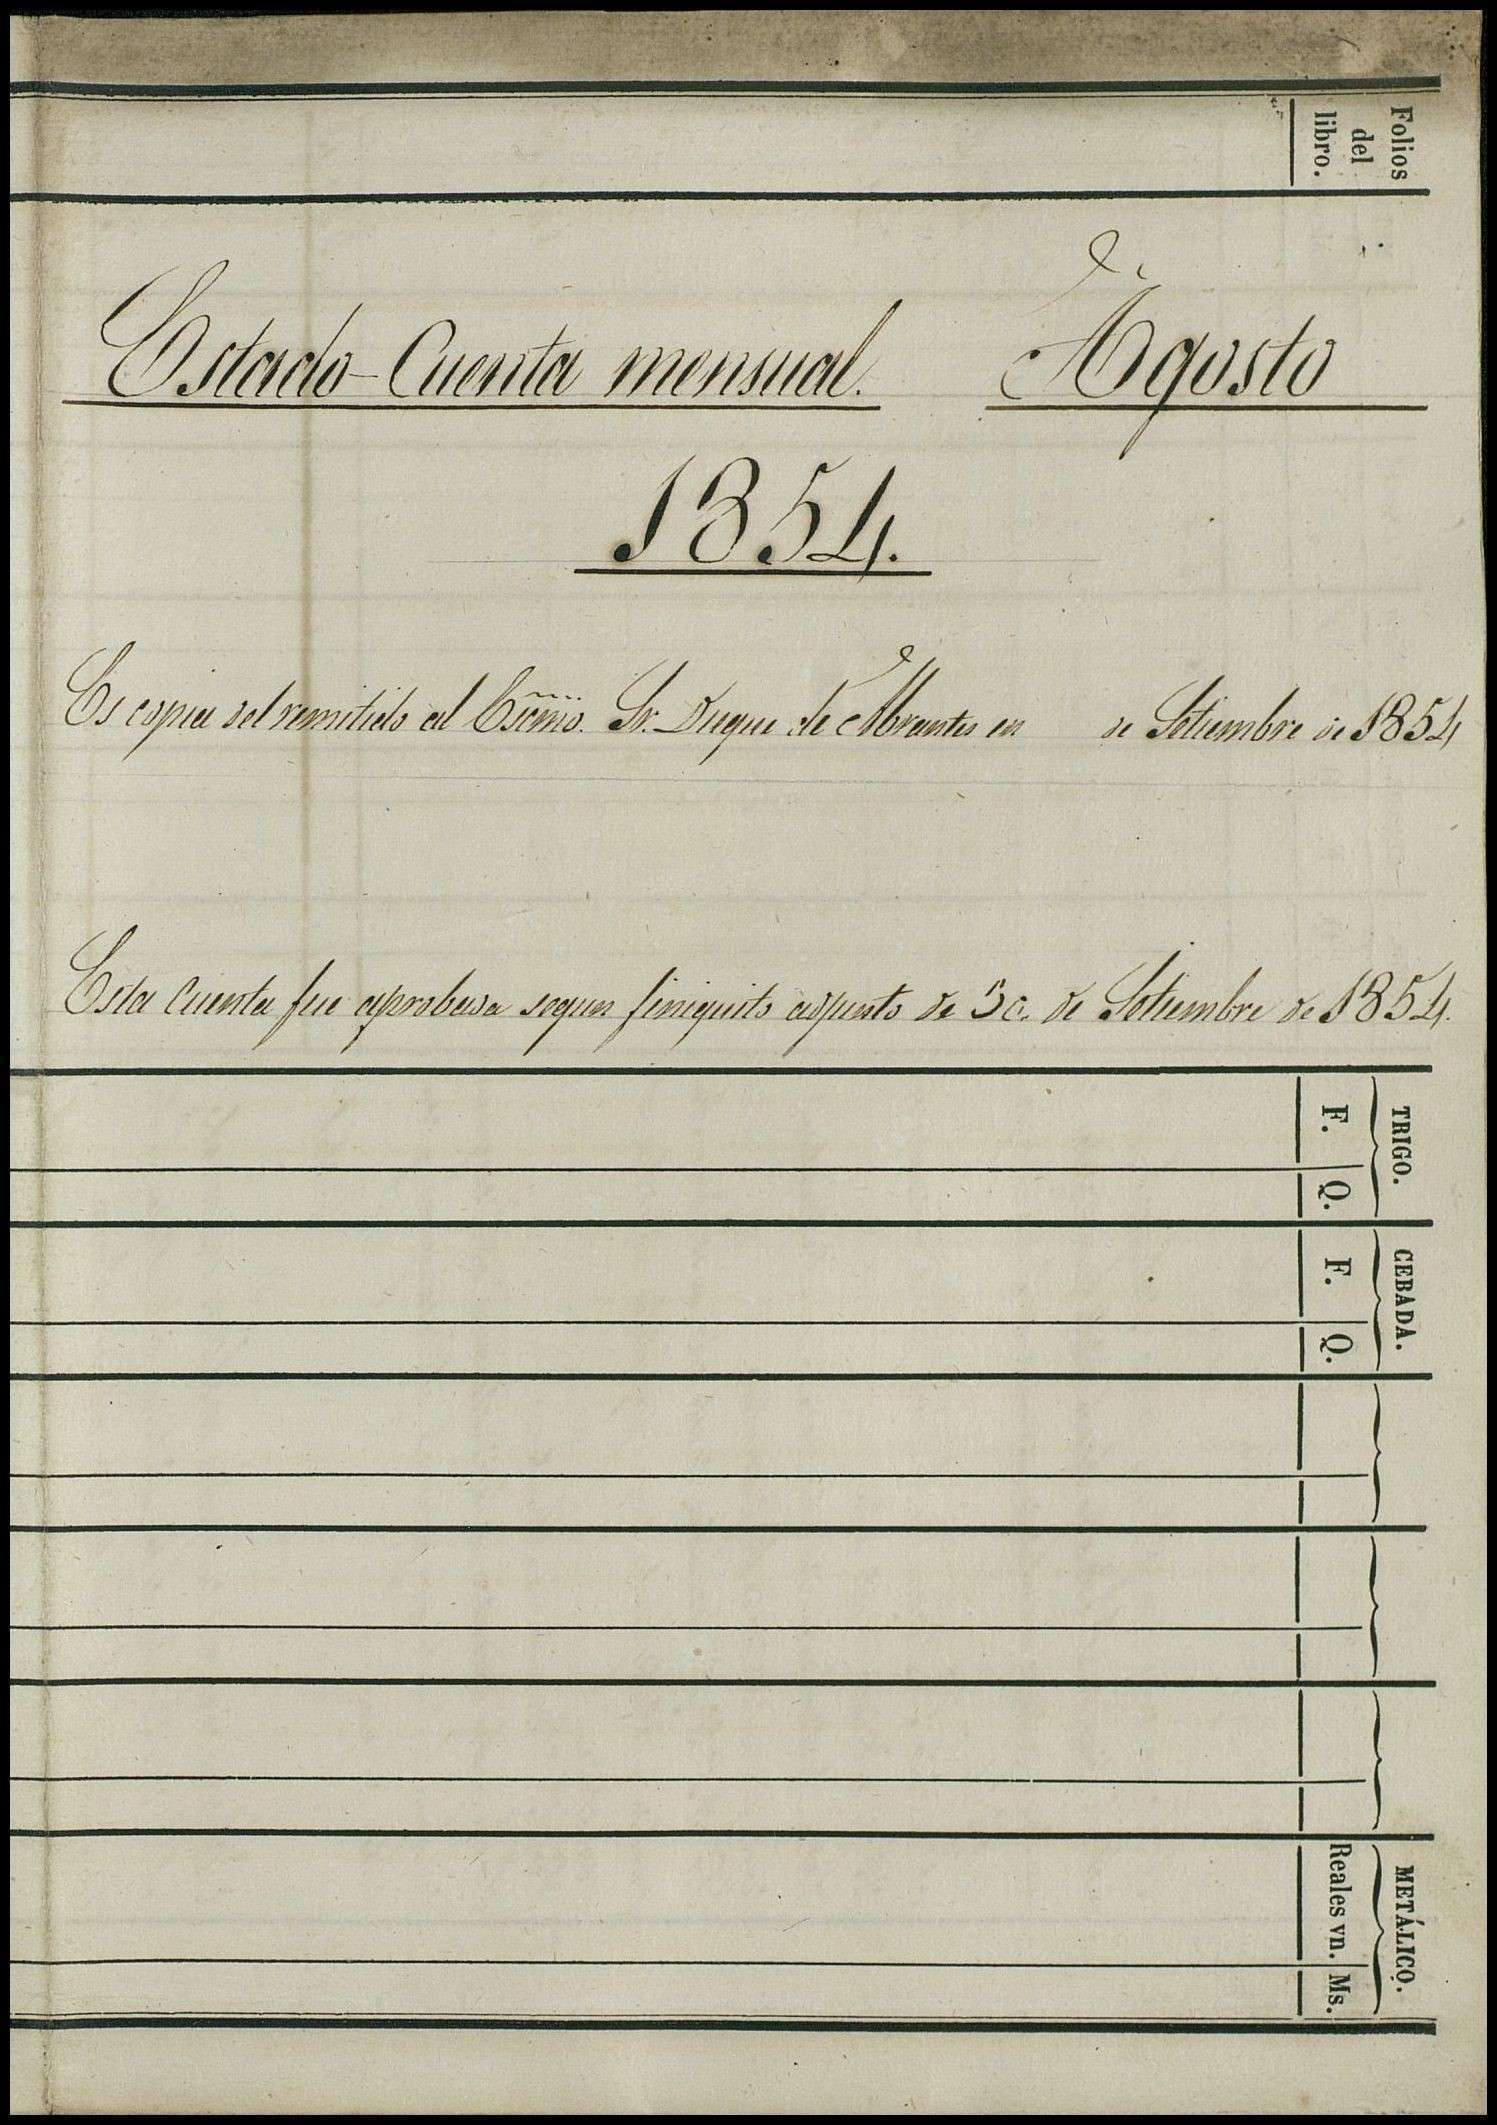 Folios
del
libro.
Estado-Cuenta mensual. Agosto
1854.
Es copia del remitido al Escmo. Sr. Duque de Abrantes en de Setiembre de 1854
Esta Cuenta fue aprobada segun finiquito adjunto de 30. de Setiembre de 1854.
TRIGO.
F. Q.
CEBADA.
F. Q.
METÁLICO.
Reales vn. Ms.